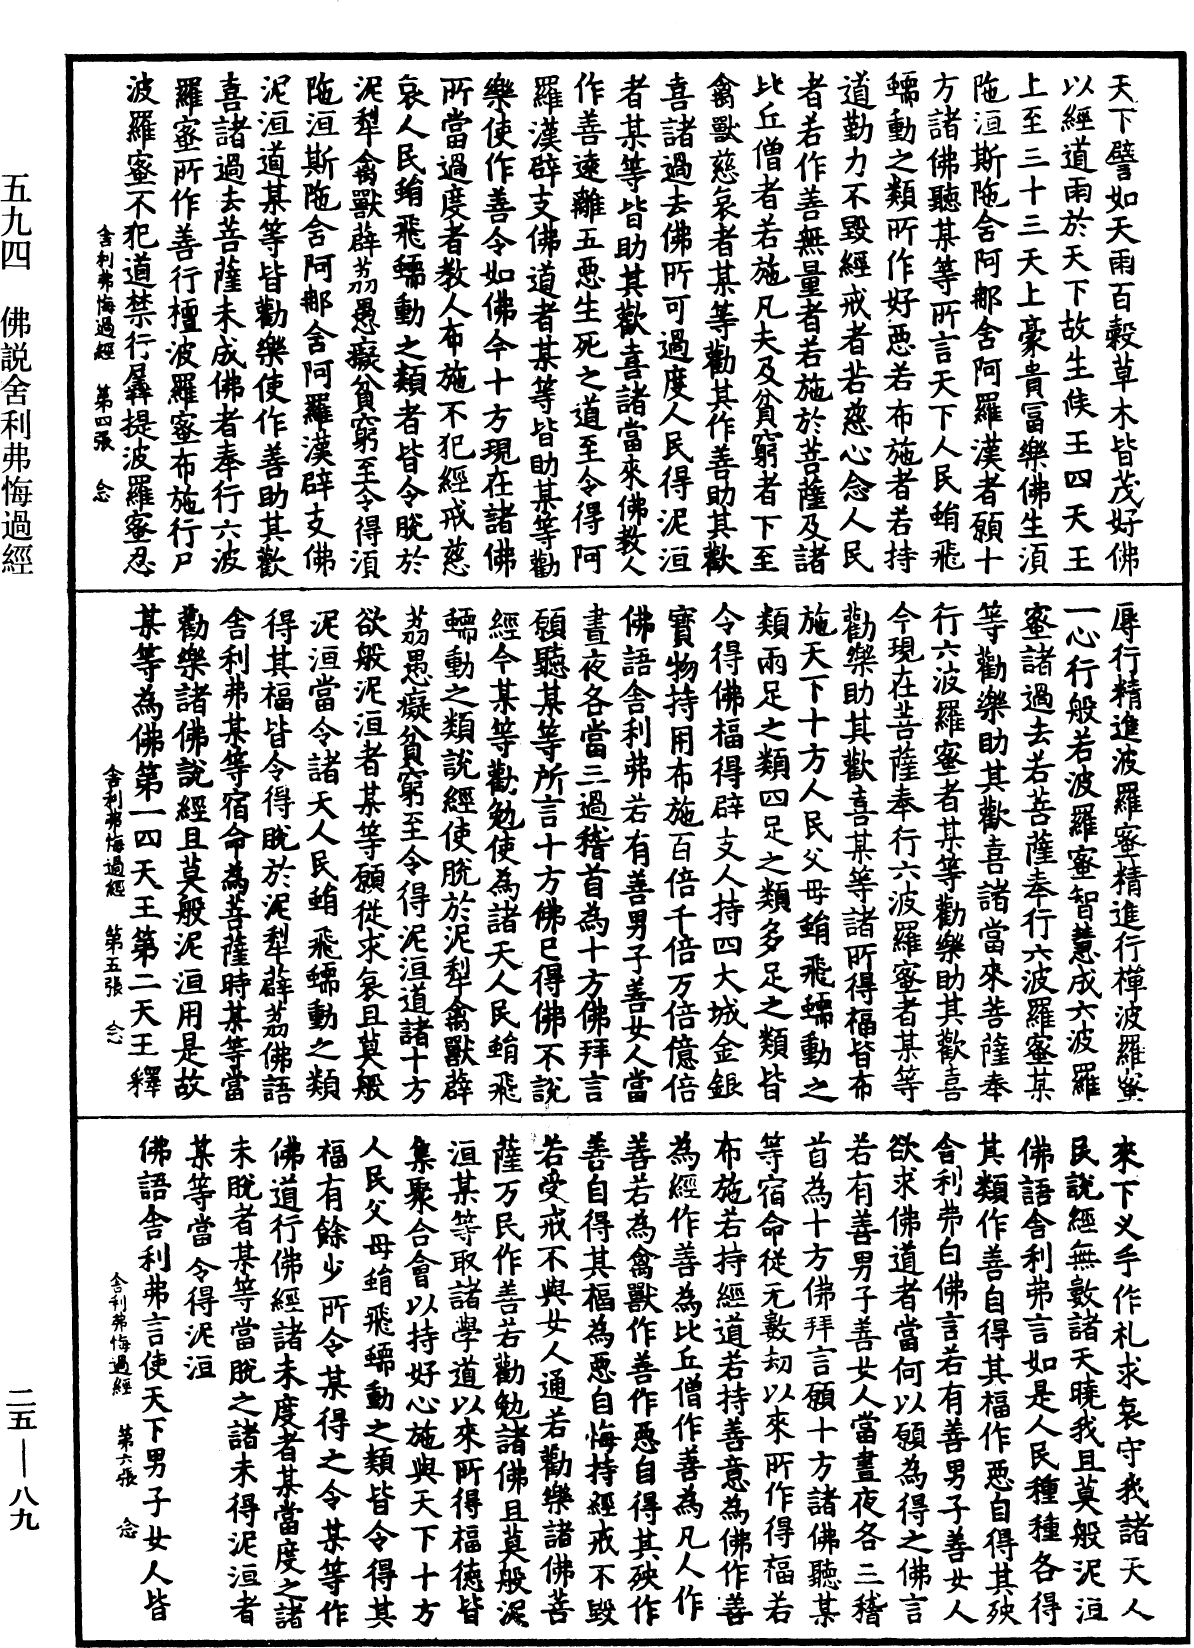 五九四　佛説舍利弗悔過經
二五—八九
天下譬如天雨百穀草木皆茂好佛
以經道雨於天下故生侯王四天王
上至三十三天上豪貴冨樂佛生湏
陁洹斯陁舍阿那舍阿羅漢者願十
方諸佛聽某等所言天下人民蜎飛
蠕動之類所作好惡若布施者若持
道勤力不毀經戒者若慈心念人民
者若作善無量者若施於菩薩及諸
比丘僧者若施凡夫及貧窮者下至
禽獸慈哀者某等勸其作善助其歡
喜諸過去佛所可過度人民得泥洹
者某等皆助其歡喜諸當來佛教人
作善遠離五惡生死之道至令得阿
羅漢辟支佛道者某等皆助某等勸
樂使作善令如佛今十方現在諸佛
所當過度者教人布施不犯經戒慈
哀人民蜎飛蠕動之類者皆令脫於
泥犁禽獸薜荔愚癡貧窮至令得湏
陁洹斯陁含阿那含阿羅漢辟支佛
泥洹道某等皆勸樂使作善助其歡
喜諸過去菩薩未成佛者奉行六波
羅蜜所作善行檀波羅蜜布施行尸
波羅蜜不犯道禁行羼提波羅蜜忍
舍利弗悔過經　第四張　念
辱行精進波羅蜜精進行禪波羅蜜
一心行般若波羅蜜智慧成六波羅
蜜諸過去若菩薩奉行六波羅蜜某
等勸樂助其歡喜諸當來菩薩奉
行六波羅蜜者某等勸樂助其歡喜
今現在菩薩奉行六波羅蜜者某等
勸樂助其歡喜某等諸所得福皆布
施天下十方人民父母蜎飛蠕動之
類兩足之類四足之類多足之類皆
令得佛福得辟支人持四大城金銀
寶物持用布施百倍千倍万倍億倍
佛語舍利弗若有善男子善女人當
晝夜各當三過稽首為十方佛拜言
願聽某等所言十方佛已得佛不說
經今某等勸勉使為諸天人民蜎飛
蠕動之類說經使脫於泥犁禽獸薜
荔愚癡貧窮至令得泥洹道諸十方
欲般泥洹者某等願從求哀且莫般
泥洹當令諸天人民蜎飛蠕動之類
得其福皆令得脫於泥犁薜荔佛語
舍利弗某等宿命為菩薩時某等當
勸樂諸佛說經且莫般泥洹用是故
某等為佛第一四天王第二天王釋
舍利弗悔過經　第五張　念
來下乂手作礼求哀守我諸天人
民說經無數諸天曉我且莫般泥洹
佛語舍利弗言如是人民種種各得
其類作善自得其福作惡自得其殃
舍利弗白佛言若有善男子善女人
欲求佛道者當何以願為得之佛言
若有善男子善女人當晝夜各三稽
首為十方佛拜言願十方諸佛聽某
等宿命從无數劫以來所作得福若
布施若持經道若持善意為佛作善
為經作善為比丘僧作善為凡人作
善若為禽獸作善作惡自得其殃作
善自得其福為惡自悔持經戒不毀
若受戒不與女人通若勸樂諸佛菩
薩万民作善若勸勉諸佛且莫般泥
洹某等取諸學道以來所得福德皆
集聚合會以持好心施與天下十方
人民父母蜎飛蠕動之類皆令得其
福有餘少所令某得之令某等作
佛道行佛經諸未度者某當度之諸
未脫者某等當脫之諸未得泥洹者
某等當令得泥洹
佛語舍利弗言使天下男子女人皆
舍利弗悔過經　第六張　念